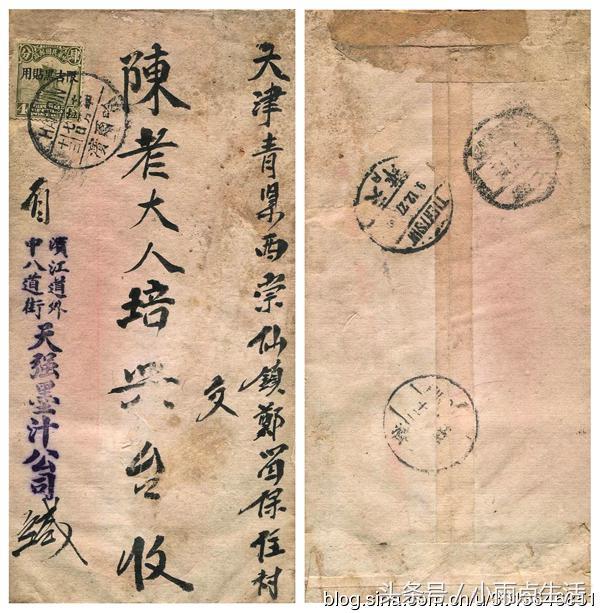 天津青県西崇仙鎮鄭留保住村
交
陳老大人培興台收
限吉黑貼用
自
濱江道外
中八道街
天强墨汁公司
緘
TIENTSIN
9.12.27
津天
头条号／小雨点生活